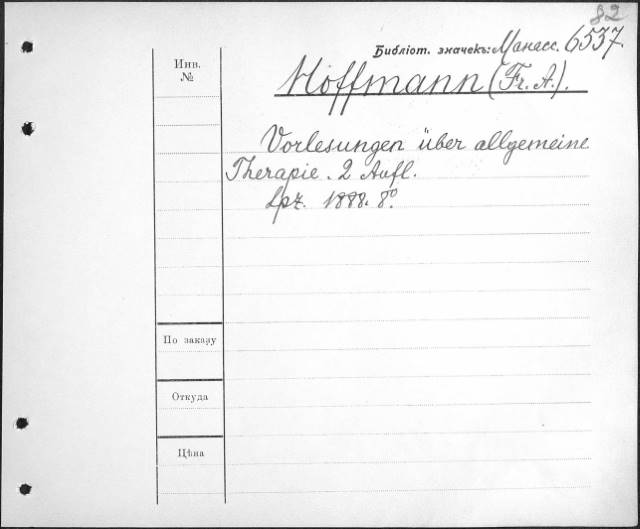 82
Библіот. значекъ: Манасс. 6537.
Инв.
№
Hoffmann (Fr. A.).
Vorlesungen über allgemeine
Therapie. 2 Aufl.
Lpz. 1888. 8º.
По заказу
Откуда
Цѣна